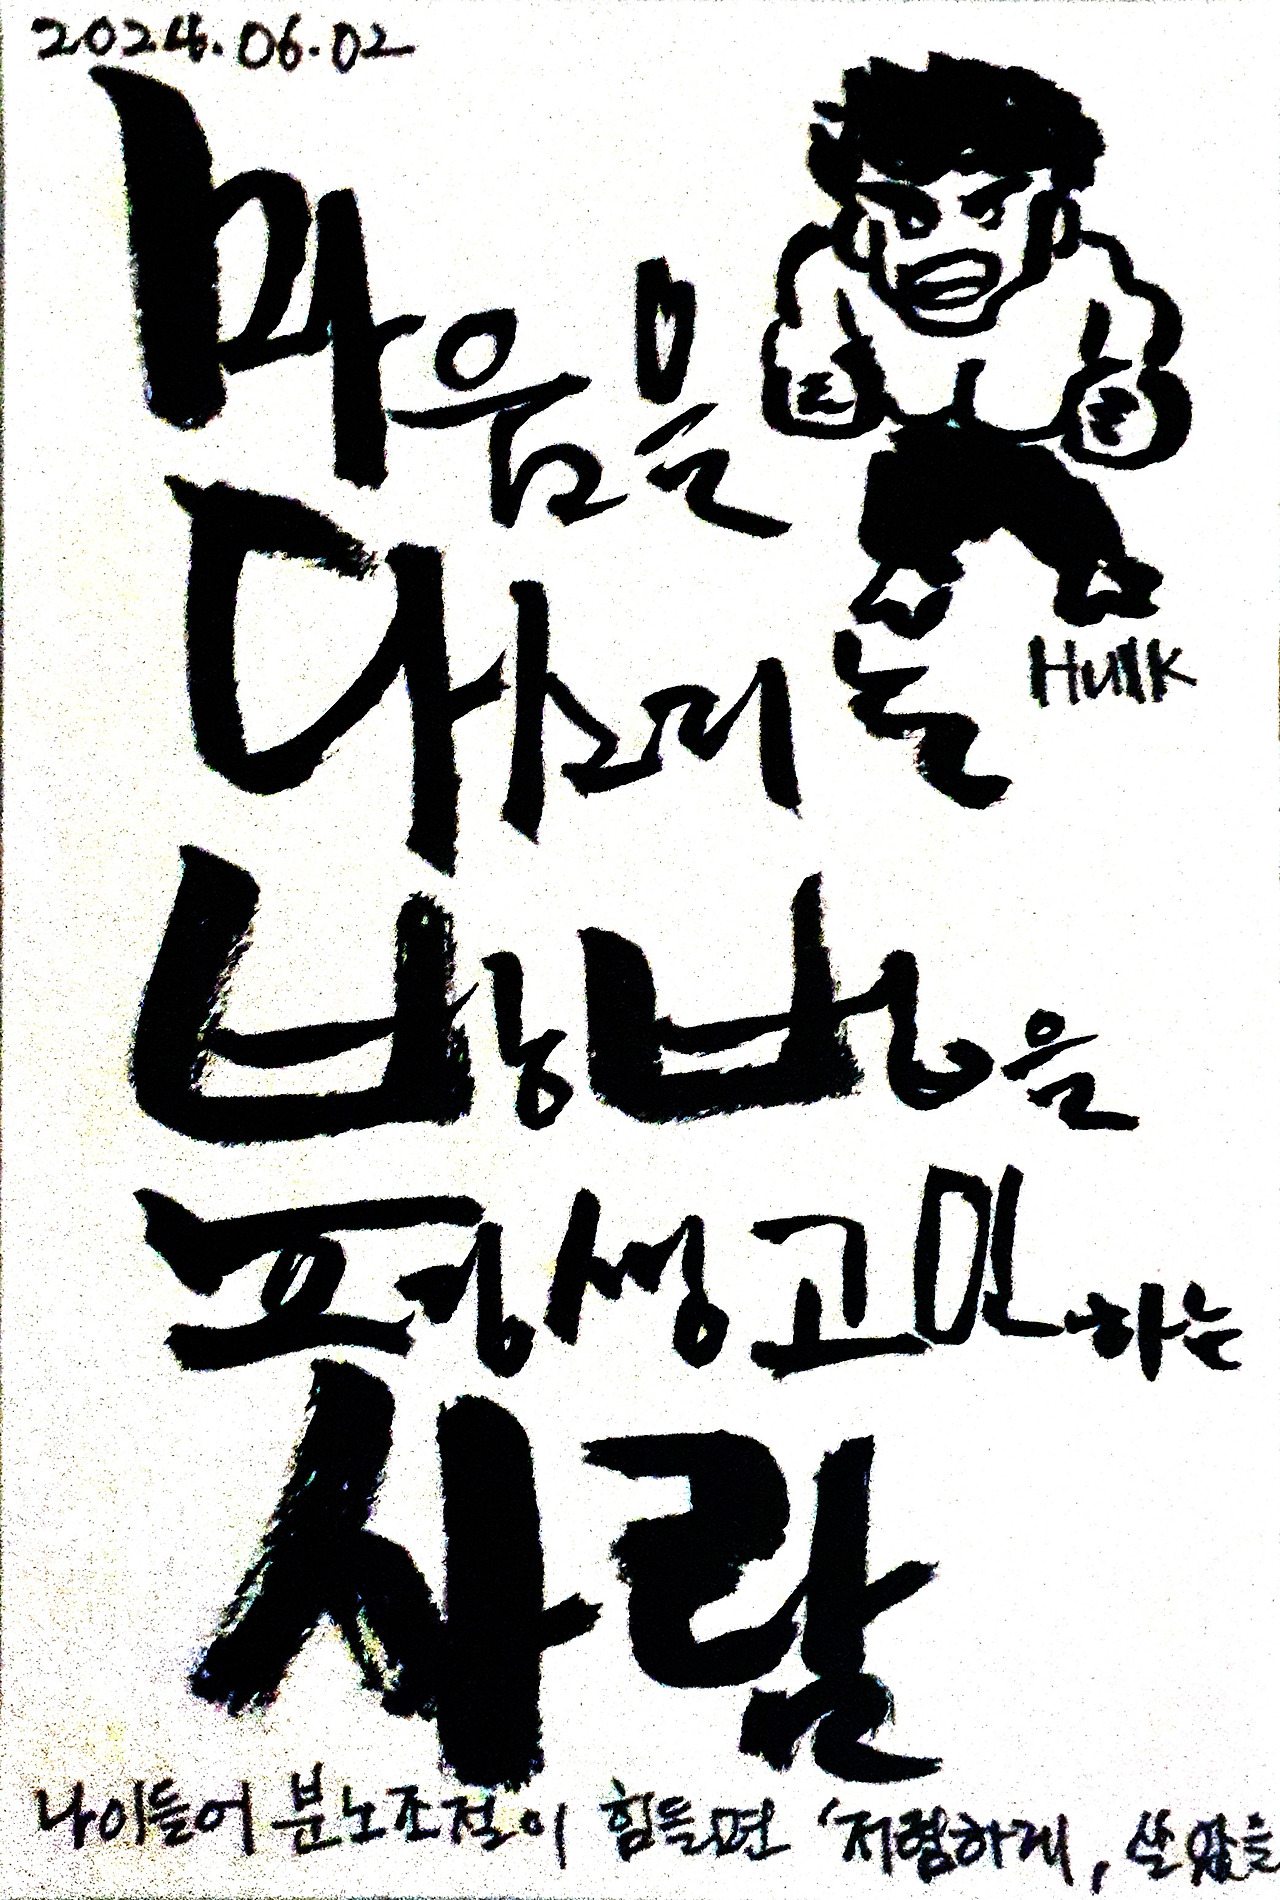 2024.06.02
마음을
다스리는
Hulk
방법을
평생 고민하는
사람
나이들어 분노조절이 힘들면 '저렴하게,